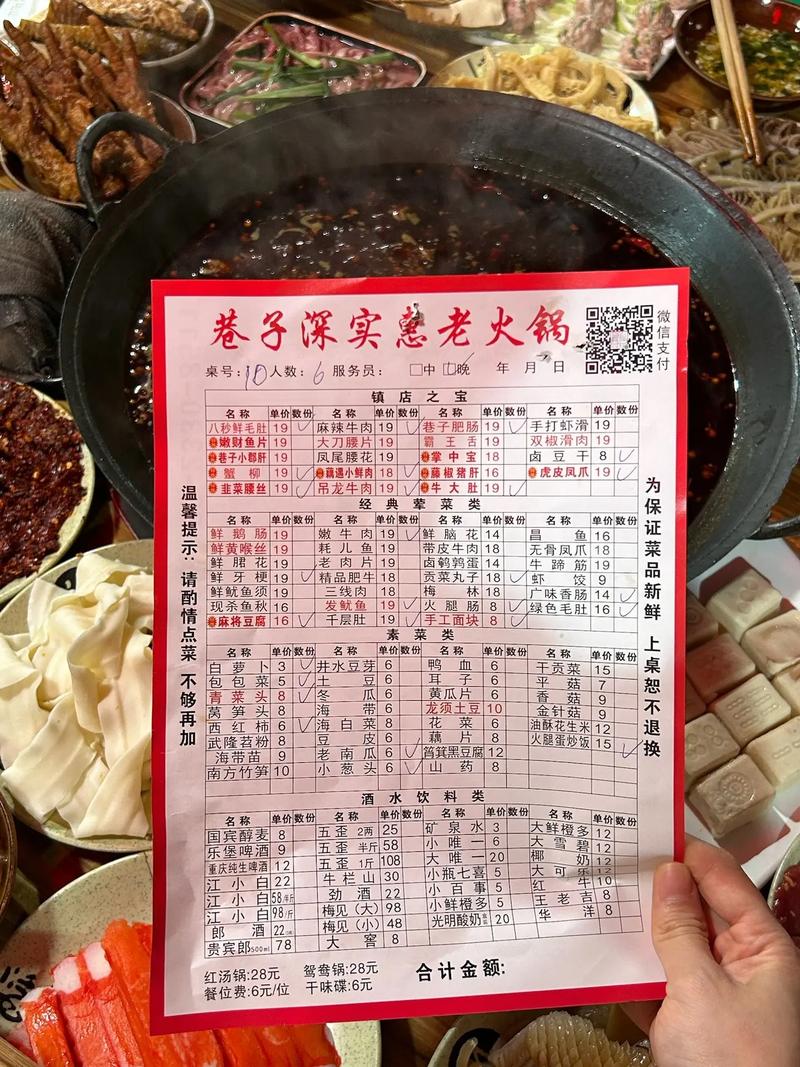 巷子深实惠老火锅
微信支付
桌号: 10 人数: 6 服务员: □中 □晚 年 月 日
镇店之宝
名称 单价 数份 名称 单价 数份 名称 单价 数份 名称 单价 数份
八秒鲜毛肚 19 ✓ 麻辣牛肉 19 ✓ 巷子肥肠 19 ✓ 手打虾滑 19
嫩财鱼片 19 大刀腰片 19 霸王舌 19 双椒滑肉 19
巷子小郡肝 19 凤尾腰花 19 掌中宝 18 卤豆干 8 ✓
蟹柳 19 ✓ 藕遇小鲜肉 18 ✓ 藤椒猪肝 16 虎皮凤爪 19 ✓
韭菜腰丝 19 ✓ 吊龙牛肉 19 ✓ 牛大肚 19 ✓
经典荤菜类
名称 单价 数份 名称 单价 数份 名称 单价 数份 名称 单价 数份
鲜鹅肠 19 嫩牛肉 19 ✓ 鲜脑花 14 昌鱼 16
鲜黄喉丝 19 耗儿鱼 19 带皮牛肉 18 无骨凤爪 18
鲜胗花 19 老肉片 19 卤鹌鹑蛋 14 牛蹄筋 19
鲜牙梗 19 ✓ 精品肥牛 18 贡菜丸子 18 ✓ 虾饺 9
鲜鱿鱼须 19 三线肉 18 梅林 18 广味香肠 14 ✓
现杀鱼秋 16 发鱿鱼 19 ✓ 火腿肠 8 ✓ 绿色毛肚 16 ✓
麻将豆腐 16 ✓ 千层肚 19 ✓ 手工面块 8 ✓
素菜类
名称 单价 数份 名称 单价 数份 名称 单价 数份 名称 单价 数份
白萝卜 3 ✓ 井水豆芽 6 鸭血 6 干贡菜 15
包包菜 5 ✓ 土豆 6 耳子 6 平菇 7
青菜头 8 ✓ 冬瓜 6 黄瓜片 6 香菇 9
莴笋头 8 海带 6 龙须土豆 10 金针菇 9
西红柿 6 ✓ 海白菜 8 花菜 6 油酥花生米 12
武隆苕粉 8 豆皮 6 藕片 8 火腿蛋炒饭 15 ✓
海带苗 9 老南瓜 6 ✓ 筲箕黑豆腐 12
南方竹笋 10 小葱头 6 ✓ 山药 8
酒水饮料类
名称 单价 数份 名称 单价 数份 名称 单价 数份 名称 单价 数份
国宾醇麦 8 五歪 2两 25 矿泉水 3 大鲜橙多 12
乐堡啤酒 9 五歪 半斤 58 小唯一 6 大雪碧 12
重庆纯生啤酒 12 五歪 1斤 108 大唯一 20 椰奶 12
江小白 22 牛栏山 30 小瓶七喜 5 大可乐 12
江小白 58/半斤 劲酒 22 小百事 5 红牛 10
江小白 98/斤 梅见(大) 98 小鲜橙多 5 王老吉 8
郎酒 22 梅见(小) 48 光明酸奶 20 华洋 8
贵宾郎500ml 78 大窖 8
红汤锅:28元 鸳鸯锅:28元 合计金额:
餐位费:6元/位 干味碟:6元
温馨提示:请酌情点菜 不够再加
为保证菜品新鲜 上桌恕不退换